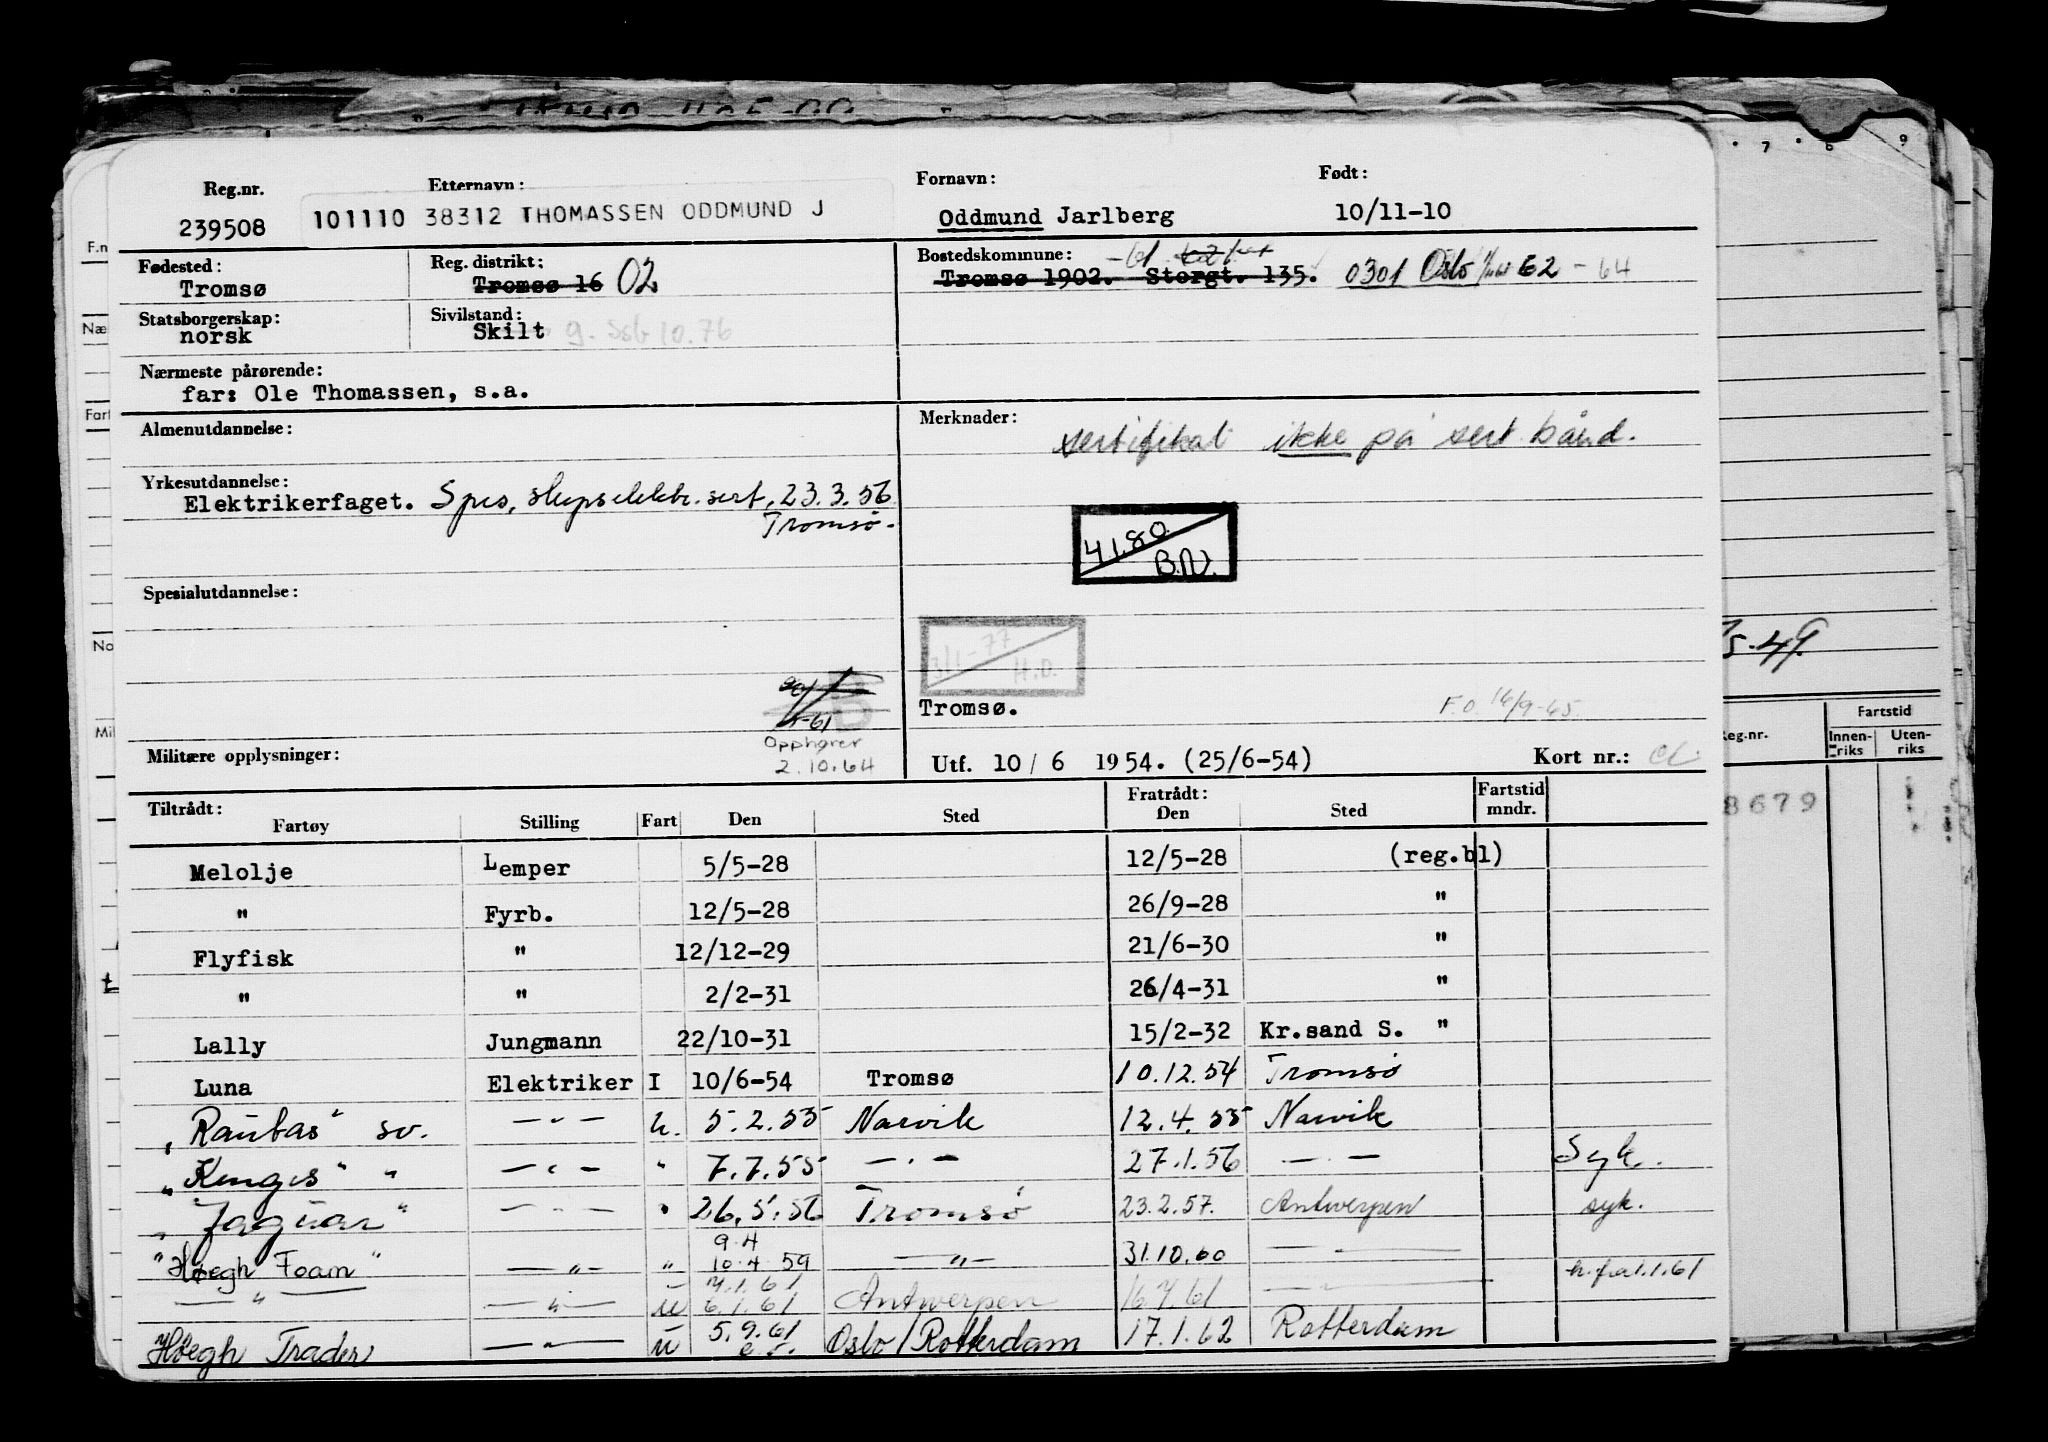 Reg.nr. Etternavn: Fornavn: Født:
239508 101110 38312 THOMASSEN ODDMUND J Oddmund Jarlberg 10/11-10
Fødested: Tromsø
Reg. distrikt: Tromsø 16 02
Bostedskommune: -61
Tromsø 1902. Storgt. 135. 0301 Oslo 62 - 64
Statsborgerskap: norsk
Sivilstand: Skilt g. 10.76
Nærmeste pårørende:
far: Ole Thomassen, s.a.
Almenutdannelse:
Merknader: sertifikat ikke på sert bånd.
Yrkesutdannelse:
Elektrikerfaget. Spes, skipselektr. sert, 23.3.56
Tromsø.
4.1.80
B.N.
Spesialutdannelse:
3/1-77
H.O.
5-61
Tromsø. F.O. 16/9-65.
Opphører
2.10.64
Militære opplysninger:
Utf. 10 / 6 1954. (25/6-54) Kort nr.:
Tiltrådt: Fratrådt: Fartstid
Fartøy Stilling Fart Den Sted Den Sted mndr.
Melolje Lemper 5/5-28 12/5-28 (reg.bl)
" Fyrb. 12/5-28 26/9-28 "
Flyfisk " 12/12-29 21/6-30 "
" " 2/2-31 26/4-31 "
Lally Jungmann 22/10-31 15/2-32 Kr.sand S. "
Luna Elektriker I 10/6-54 Tromsø 10.12.54 Tromsø
"Rautas" sv. — " — u. 5.2.55 Narvik 12.4.55 Narvik
"Kengis" " — " — " 7.7.55 — " — 27.1.56 — " — Syk.
"Jaguar" — " — " 26.5.56 Tromsø 23.2.57. Antwerpen syk.
"Høegh Foam" — " — " 9.4 10.4 59 — " — 31.10.60 — " — h. fra 1.1.61
— " — — " — u 4.1.61 6.1.61 Antwerpen 16.7.61 — " —
Høegh Trader — " — u 5.9.61 Oslo/Rotterdam 17.1.62 Rotterdam
7 8 9
5-49.
Reg.nr. Fartstid
Innen-riks Uten-riks
8679